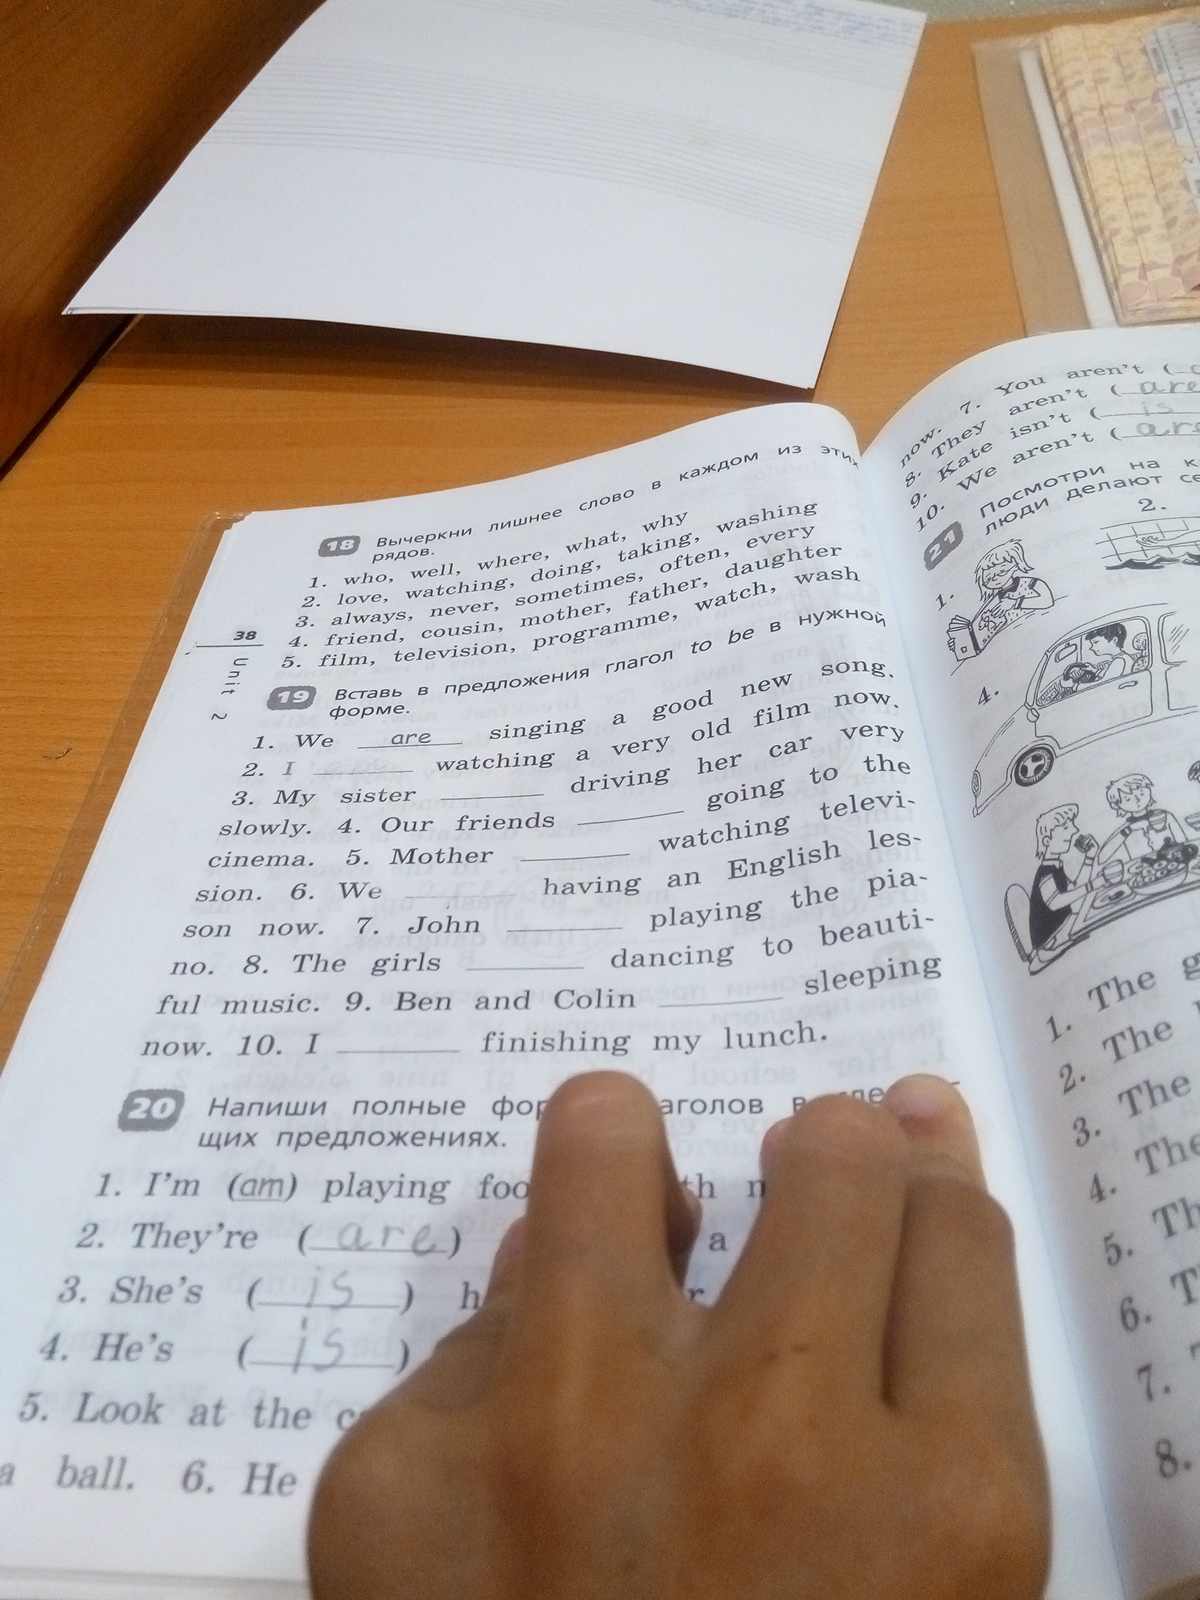 18 Вычеркни лишнее слово в каждом из этих
рядов.
1. who, well, where, what, why
2. love, watching, doing, taking, washing
3. always, never, sometimes, often, every
4. friend, cousin, mother, father, daughter
5. film, television, programme, watch, wash
38
Unit 2
19 Вставь в предложения глагол to be в нужной
форме.
1. We are singing a good new song.
2. I watching a very old film now.
3. My sister driving her car very
slowly. 4. Our friends going to the
cinema. 5. Mother watching televi-
sion. 6. We having an English les-
son now. 7. John playing the pia-
no. 8. The girls dancing to beauti-
ful music. 9. Ben and Colin sleeping
now. 10. I finishing my lunch.
20 Напиши полные в
щих предложениях.
1. I'm (am) playing
2. They're (are) a
3. She's (is)
4. He's (is)
5. Look at the
a ball. 6. He
now. 7. You aren't (
8. They aren't (are
9. Kate isn't (is
10. We aren't (are
21 Посмотри на
люди делают
1.
2.
4.
1. The
2. The
3. The
4. The
5.
6.
7.
8.